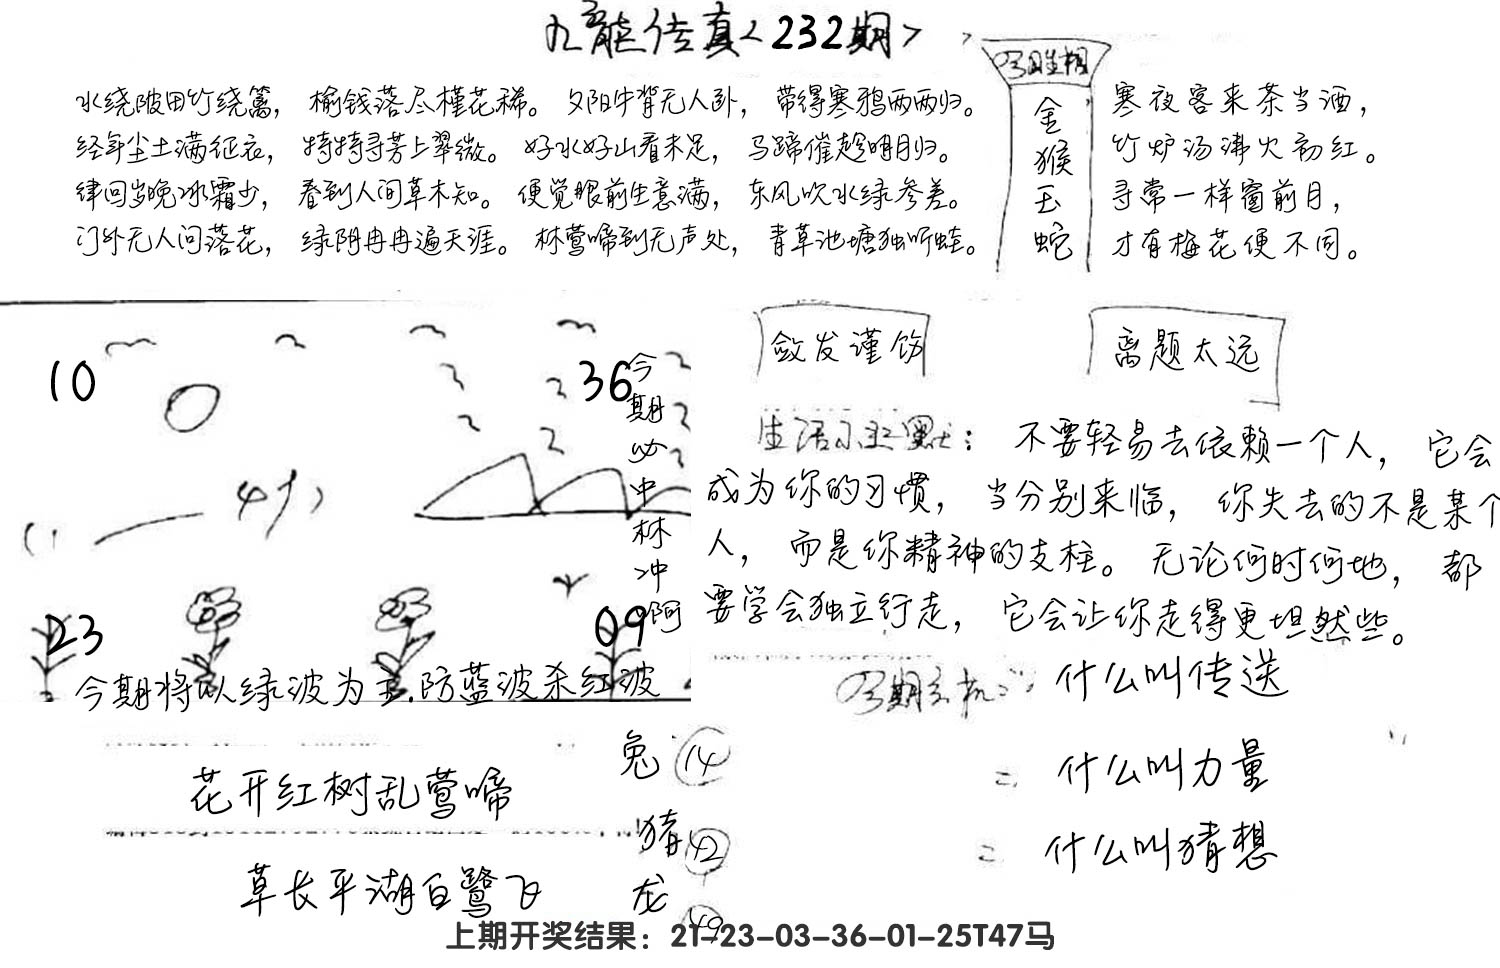 九龙传真<232期>
水绕陂田竹绕篱，榆钱落尽槿花稀。夕阳牛背无人卧，带得寒鸦两两归。
经年尘土满征衣，特特寻芳上翠微。好水好山看未足，马蹄催趁明月归。
律回岁晚冰霜少，春到人间草木知。便觉眼前生意满，东风吹水绿参差。
门外无人问落花，绿阴冉冉遍天涯。林莺啼到无声处，青草池塘独听蛙。
金
猴
玉
蛇
寒夜客来茶当酒，
竹炉汤沸火初红。
寻常一样窗前月，
才有梅花便不同。
10
36
今期必中林冲啊
23
09
今期将以绿波为主.防蓝波杀红波
敛发谨饬
离题太远
生活小幽默：不要轻易去依赖一个人，它会
成为你的习惯，当分别来临，你失去的不是某个
人，而是你精神的支柱。无论何时何地，都
要学会独立行走，它会让你走得更坦然些。
什么叫传送
什么叫力量
什么叫猜想
花开红树乱莺啼
草长平湖白鹭飞
兔 14
猪 42
龙 49
上期开奖结果：21-23-03-36-01-25T47马